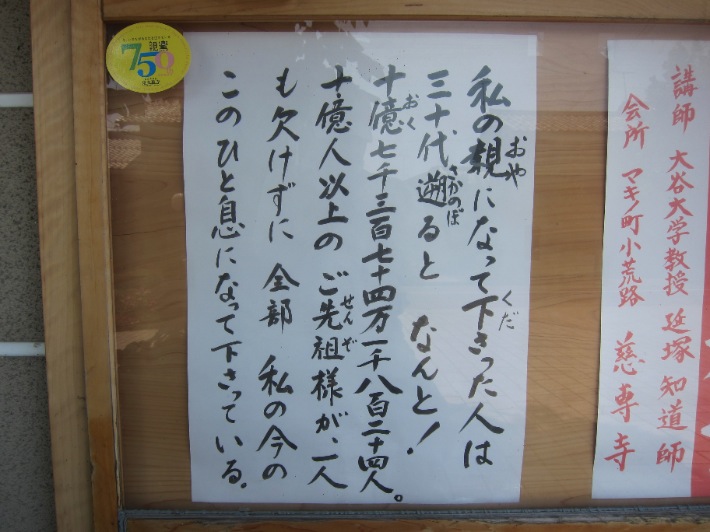 講師 大谷大学教授 延塚知道師
会所 マキノ町小荒路 慈専寺
私の親になって下さった人は
三十代遡ると なんと!
十億七千三百七十四万一千八百二十四人。
十億人以上の ご先祖様が、一人
も欠けずに 全部 私の今の
このひと息になって下さっている。
おや
くだ
さかのぼ
おく
せんぞ
750